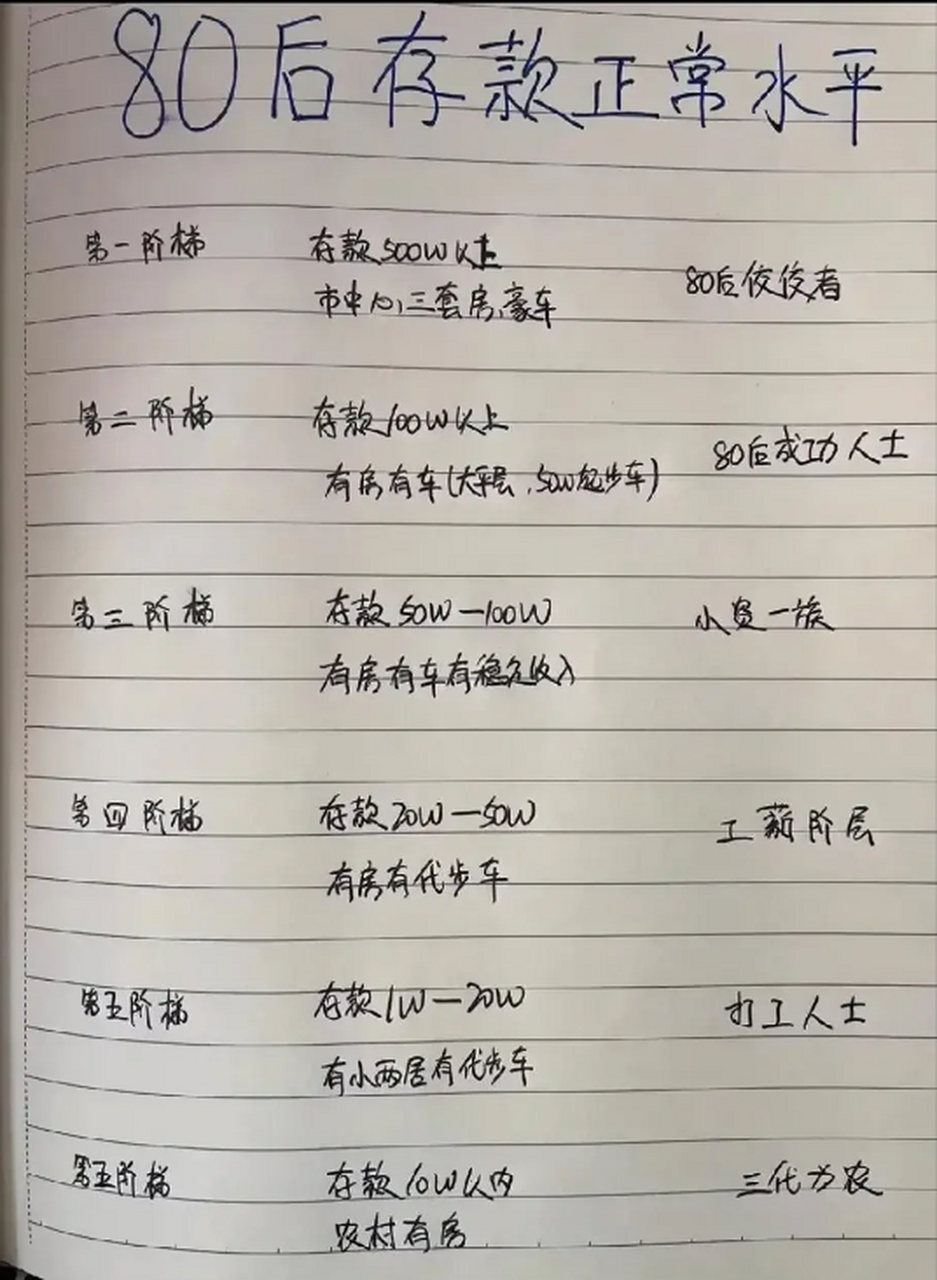 80后存款正常水平
第一阶梯 存款500W以上
市中心,三套房,豪车 80后佼佼者
第二阶梯 存款100W以上
有房有车(大平层,50W起步车) 80后成功人士
第三阶梯 存款50W—100W 小资一族
有房有车有稳定收入
第四阶梯 存款20W—50W 工薪阶层
有房有代步车
第五阶梯 存款1W—20W 打工人士
有小两居有代步车
第五阶梯 存款10W以内 三代为农
农村有房